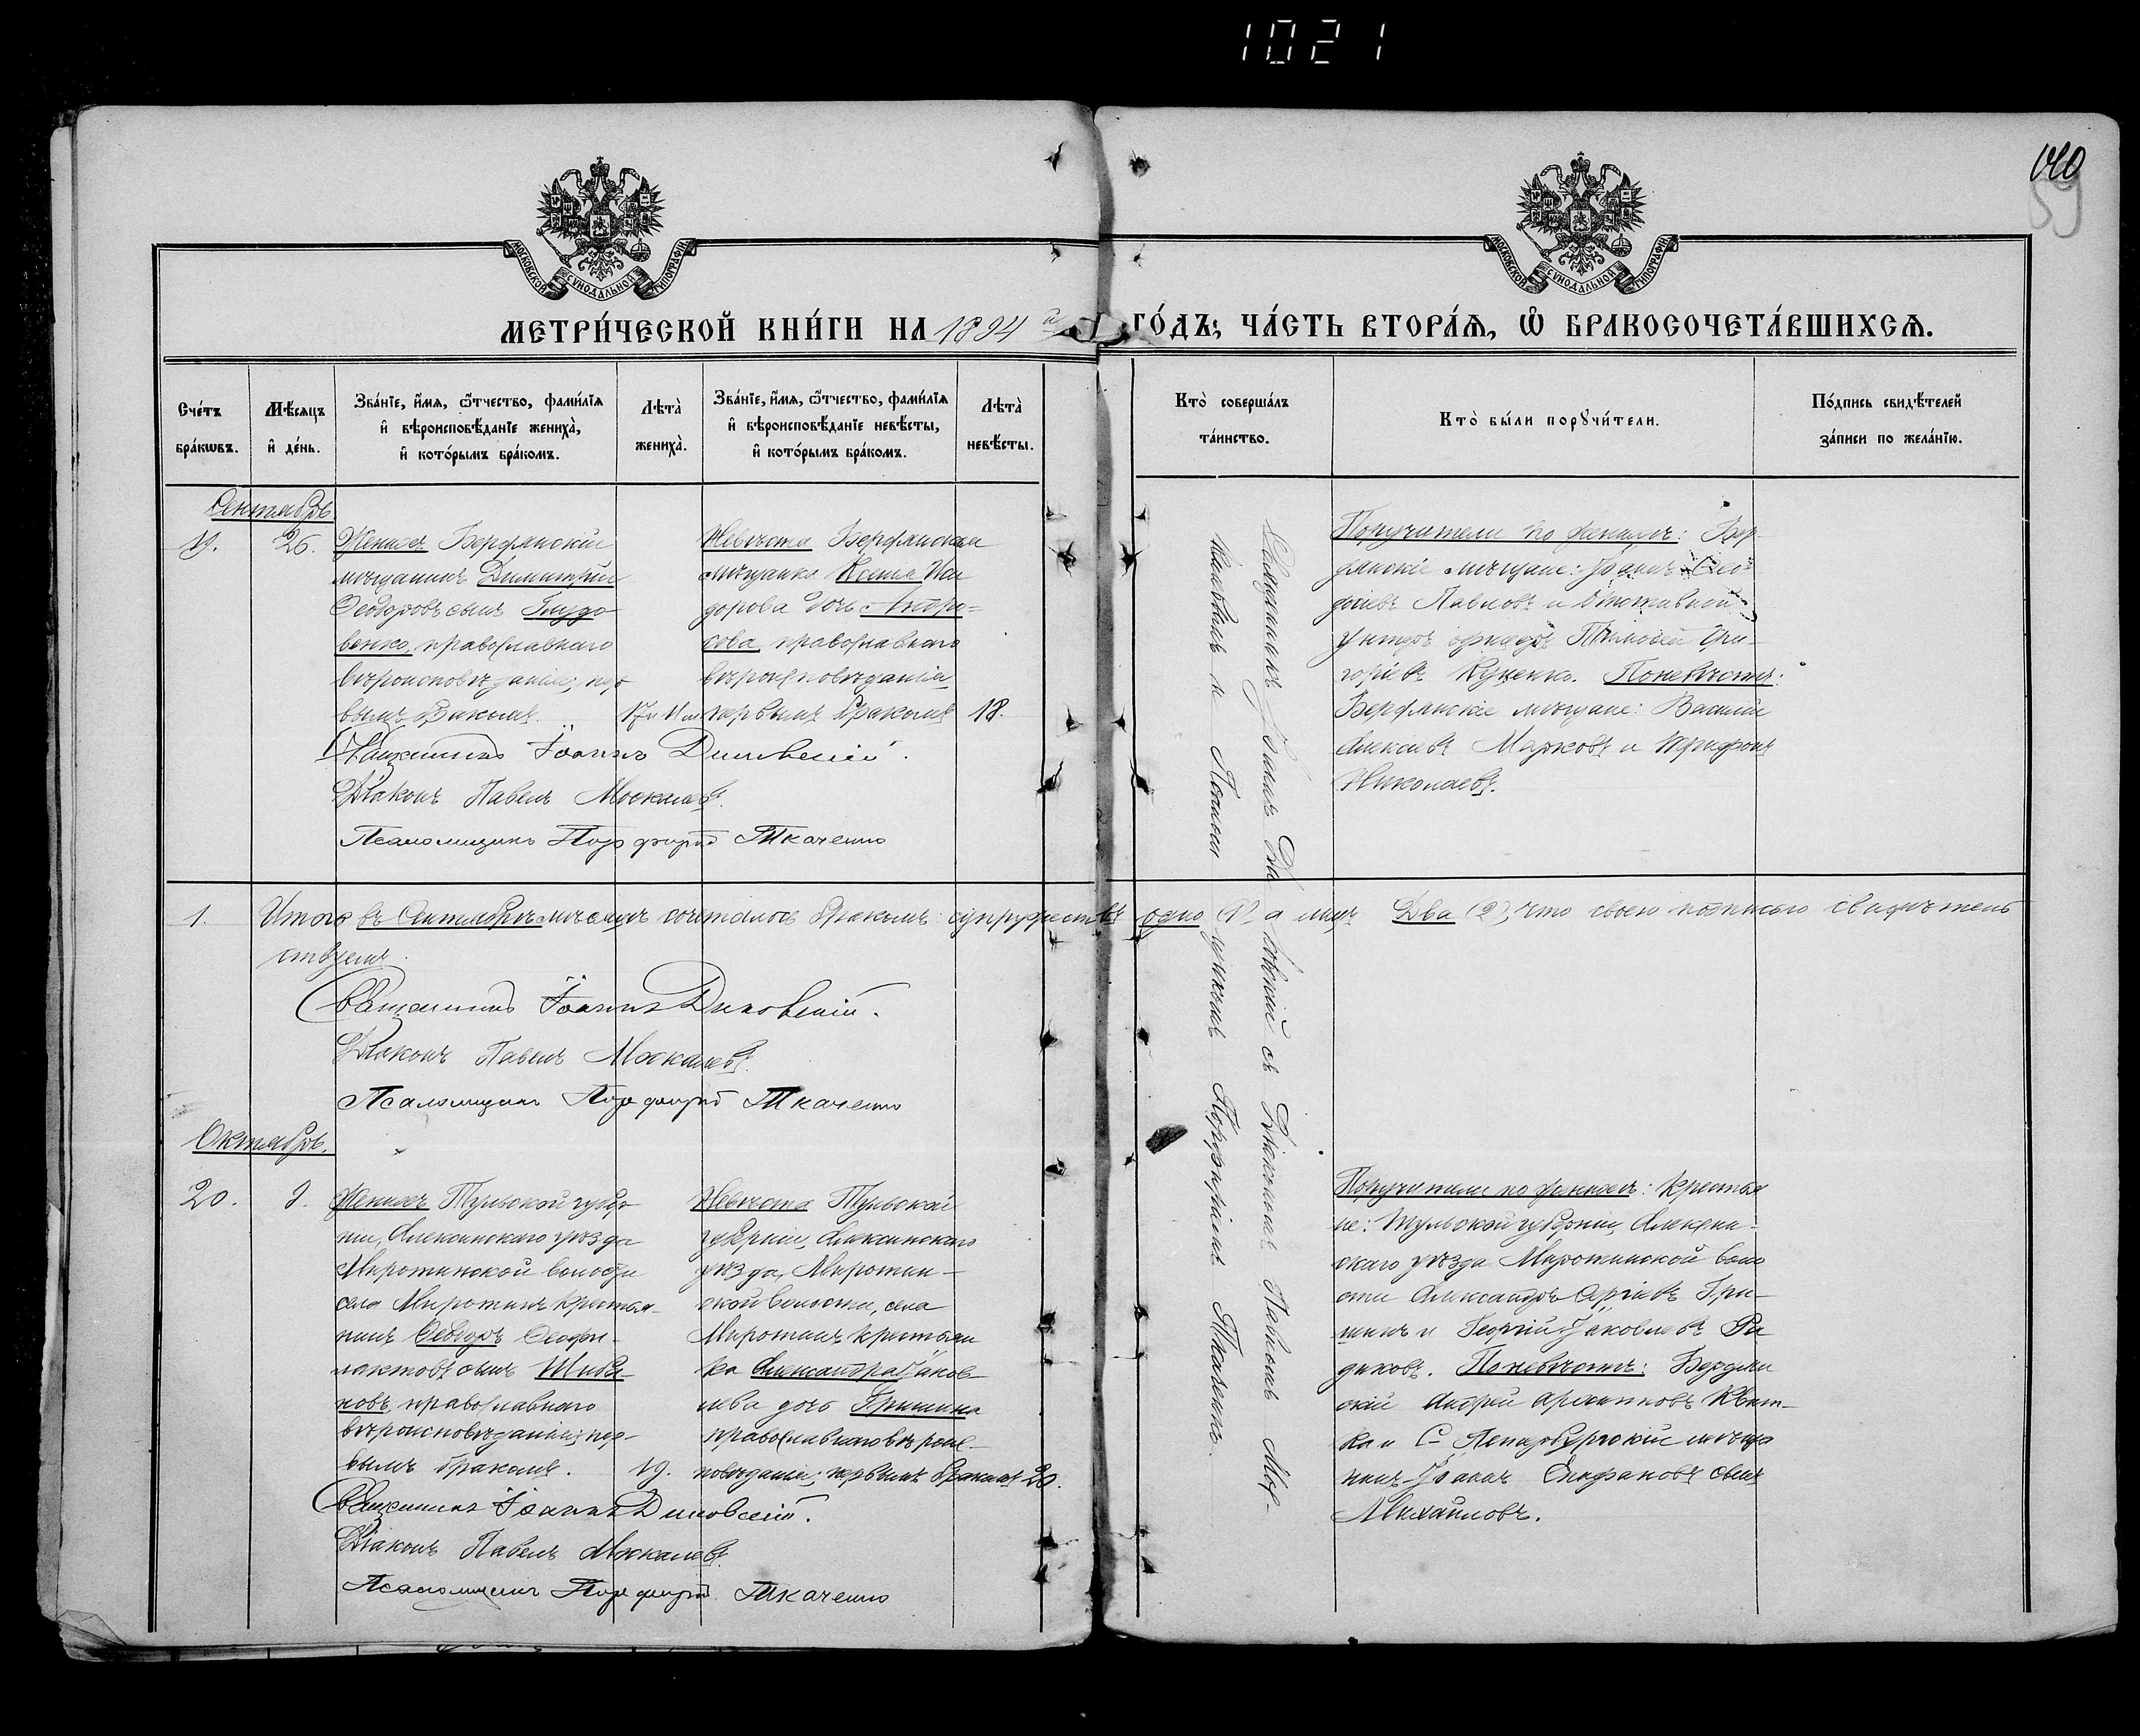 1021
140
59
МОСКОВСКОЙ СУНОДАЛЬНОЙ ТИПОГРАФІИ
МОСКОВСКОЙ СУНОДАЛЬНОЙ ТИПОГРАФІИ
МЕТРИ́ЧЕСКОЙ КНИ́ГИ НА 1894 й ГО́ДЪ, ЧА́СТЬ ВТОРА́Я, Ѽ БРАКОСОЧЕТА́ВШИХСЯ.
Сче́тъ бра́кѡвъ.
Мѣ́сяцъ и҆ де́нь.
Зва́нїе, и҆́мя, ѻ҆́тчество, фами́лїя
и҆ вѣроисповѣ́данїе жениха̀,
и҆ кото́рымъ бра́комъ.
Лѣта̀ жениха̀.
Зва́нїе, и҆́мя, ѻ҆́тчество, фами́лїя
и҆ вѣроисповѣ́данїе невѣ́сты,
и҆ кото́рымъ бра́комъ.
Лѣта̀ невѣ́сты.
Кто̀ соверша́лъ та́инство.
Кто̀ бы́ли порꙋчи́тели.
По́дпись свидѣ́телей за́писи по жела́нїю.
Сентябрь
19.
26.
Женихъ Бердянскій
мѣщанинъ Димитрій
Ѳеодоровъ сынъ Глудо-
венко, православнаго
вѣроисповѣданія, пер
вымъ бракомъ.
17 и 11 м
Невѣста Бердянская
мѣщанка Ксенія
дорова дочь
сова православнаго
вѣроисповѣданія
первымъ бракомъ
18.
Священникъ Іоаннъ Диковскій.
Діаконъ Павелъ Москалевъ.
Псаломщикъ Порфирій Ткаченко
Поручители по женихѣ: Бер
дянскіе мѣщане: Іоаннъ
Павловъ и отставной
унтеръ офицеръ Гри-
горіевъ Куценко. По невѣстѣ:
Бердянскіе мѣщане: Василій
Алексѣевъ Марковъ и Трифонъ
Николаевъ.
Священникъ Іоаннъ Диковскій съ Діакономъ Павломъ Мос-
калевымъ и Псаломщикомъ Порфиріемъ Ткаченко.
1.
Итого въ Сентябрѣ мѣсяцѣ сочеталось бракомъ: супружествъ одно (1), а лицъ Два (2), что своею подписью свидѣтель
ствуемъ.
Священникъ Іоаннъ Диковскій.
Діаконъ Павелъ Москалевъ.
Псаломщикъ Порфирій Ткаченко
Октябрь.
20.
Женихъ Тульской губер
ніи, Алексинскаго уѣзда
Миротинской волости
села Миротинъ крестья-
нинъ Ѳеодоръ Ѳеофи-
лактовъ сынъ
новъ, православнаго
вѣроисповѣданія, пер-
вымъ бракомъ.
19.
Невѣста Тульской
губерніи, Алексинскаго
уѣзда, Миротин-
ской волости, села
Миротинъ крестьян
ка Александра Іаков-
лева дочь Гришина
православнаго вѣроис-
повѣданія; первымъ бракомъ
20.
Священникъ Іоаннъ Диковскій.
Діаконъ Павелъ Москалевъ.
Псаломщикъ Порфирій Ткаченко
Поручители по женихѣ: крестья
не: Тульской губерніи, Алексин-
скаго уѣзда Миротинской воло
сти Александръ Сергіевъ Гри-
шинъ и Георгій Іаковлевъ
диковъ. По невѣстѣ: Бердян
скій Андрей Квит-
ка и С-Петербургскій мѣща
нинъ Іоаннъ сынъ
Михайловъ.